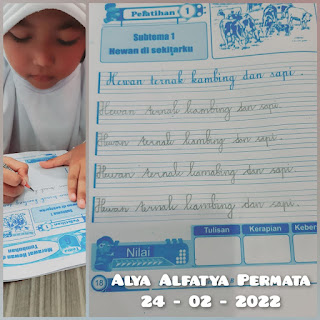 Pelatihan 1
Subtema 1
Hewan di sekitarku
Hewan ternak kambing dan sapi.
Hewan ternak kambing dan sapi.
Hewan ternak kambing dan sapi.
Hewan ternak kambing dan sapi.
Hewan ternak kambing dan sapi.
Nilai
Tulisan
Kerapian
Keber
18
ALYA ALFATYA PERMATA
24 - 02 - 2022